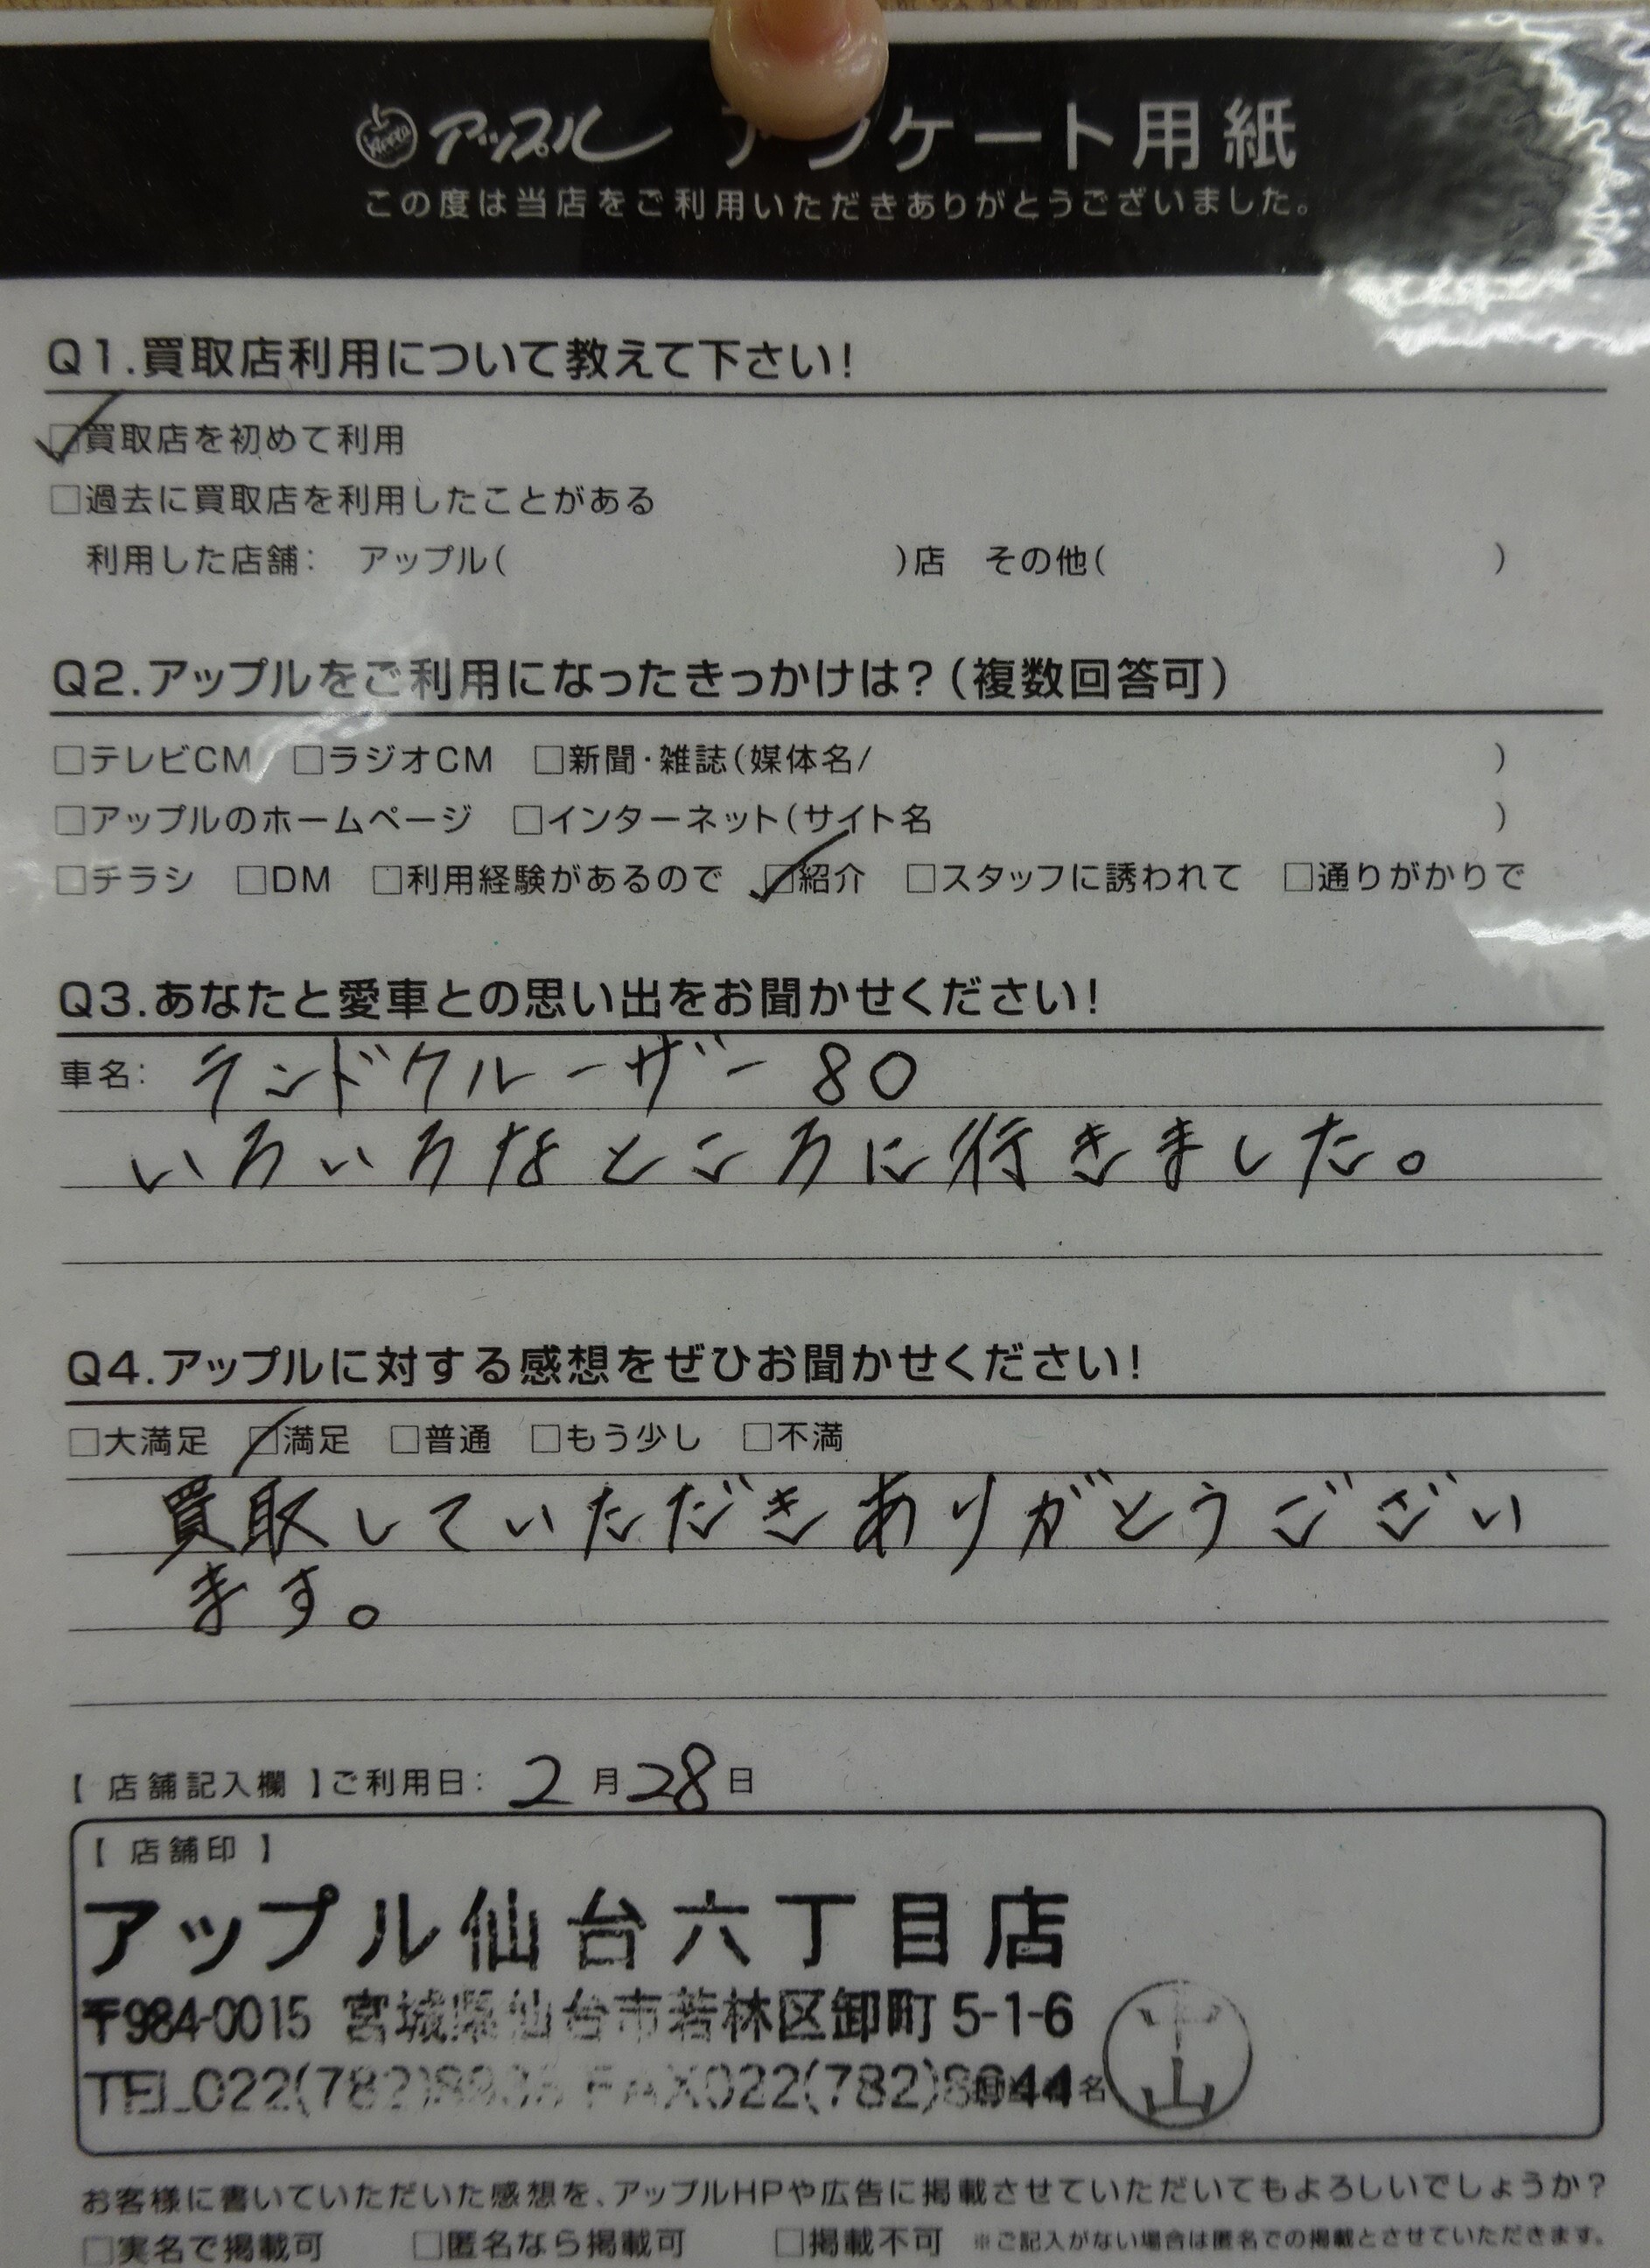 アップル アンケート用紙
この度は当店をご利用いただきありがとうございました。
Q1.買取店利用について教えて下さい!
☑買取店を初めて利用
□過去に買取店を利用したことがある
利用した店舗: アップル( )店 その他( )
Q2.アップルをご利用になったきっかけは?(複数回答可)
□テレビCM □ラジオCM □新聞・雑誌(媒体名/ )
□アップルのホームページ □インターネット(サイト名 )
□チラシ □DM □利用経験があるので ☑紹介 □スタッフに誘われて □通りがかりで
Q3.あなたと愛車との思い出をお聞かせください!
車名: ランドクルーザー80
いろいろなところに行きました。
Q4.アップルに対する感想をぜひお聞かせください!
□大満足 ☑満足 □普通 □もう少し □不満
買取していただきありがとうござい
ます。
【 店舗記入欄 】ご利用日: 2月28日
【 店舗印 】
アップル仙台六丁目店
〒984-0015 宮城県仙台市若林区卸町5-1-6
TEL022(782) FAX022(782) 名
山
お客様に書いていただいた感想を、アップルHPや広告に掲載させていただいてもよろしいでしょうか?
□実名で掲載可 □匿名なら掲載可 □掲載不可 ※ご記入がない場合は匿名での掲載とさせていただきます。